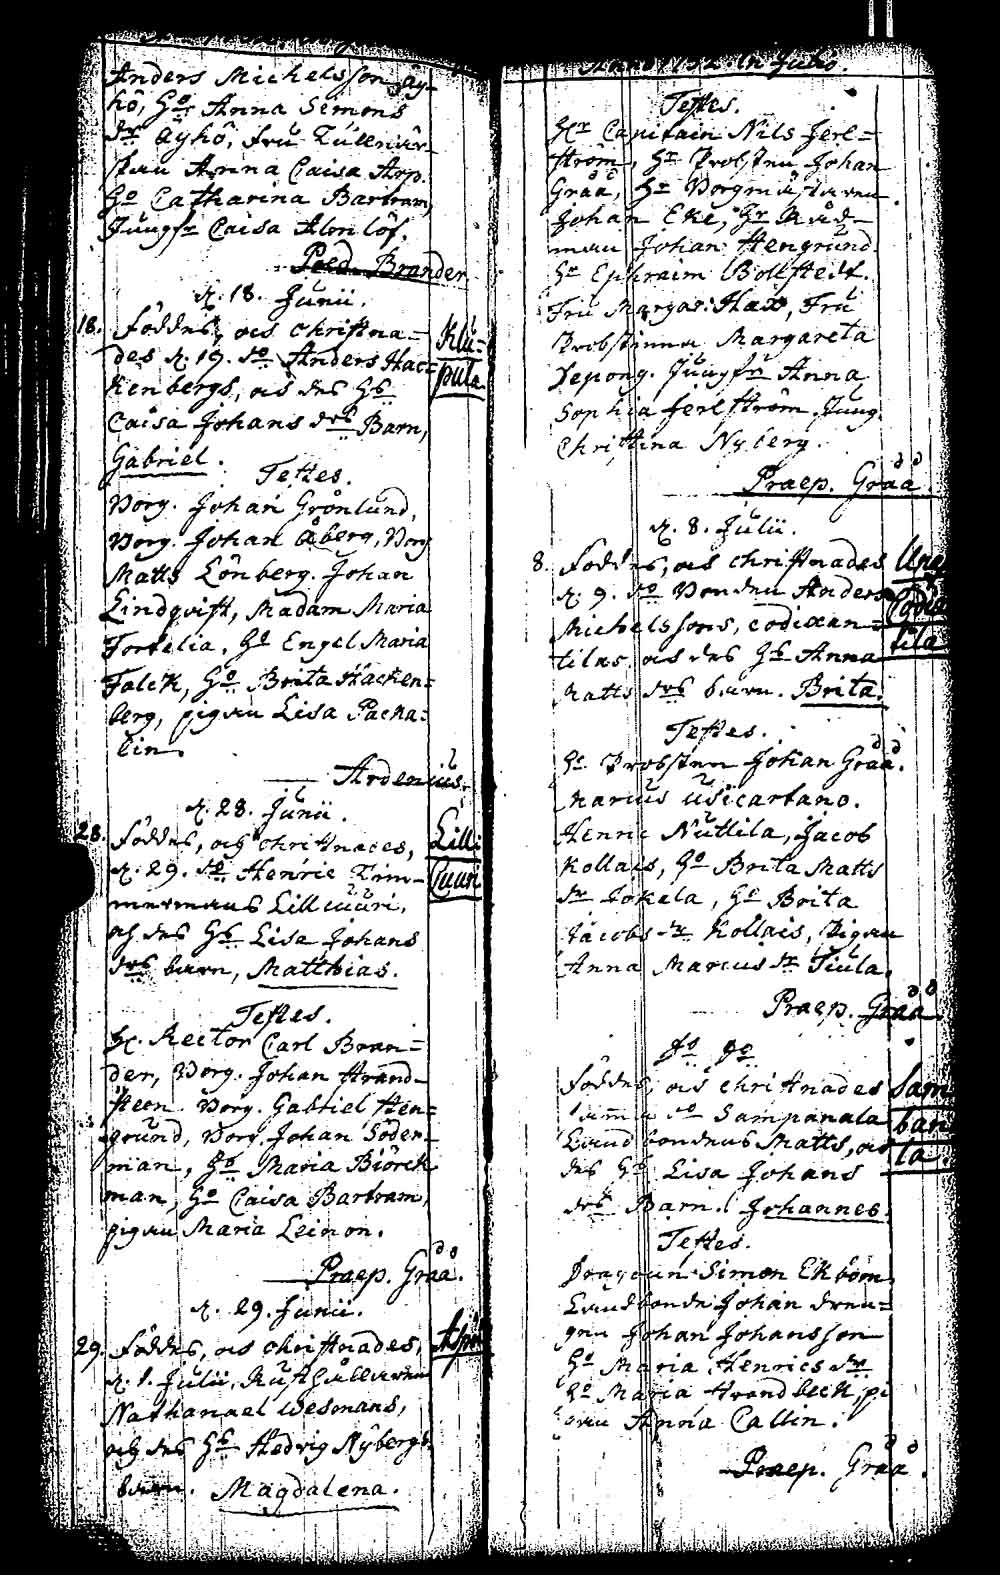 Anders Michelsson Äy-
hö, Ho Anna Simons
dr Äyhö, fru Tullnär-
skan Anna Caisa Arp.
Ho Catharina Bartram,
Jungfr Caisa Alonlöf.
Paed. Brander
d. 18. Junii.
18. Föddes, och Christna-
des d. 19. so Anders Hac-
kenbergs, och des Hs
Caisa Johans drs Barn,
Gabriel.
Klu-
pula
Testes.
Borg. Johan Grönlund,
Borg. Johan Åberg, Borg
Matts Lönberg. Johan
Lindqvist, Madam Maria
Fortelia, Ho Engel Maria
Falck, Ho Brita Hacken-
berg, pigan Lisa Packa-
lin.
Ardenius.
d. 28. Junii.
28. Föddes, och Christnades,
d. 29. so Henric Tim-
mermans Lillcuuri,
och des Hs Lisa Johans
drs barn, Matthias.
Lilli
Cuuri
Testes.
H. Rector Carl Bran-
der, Borg. Johan Strand-
steen Borg. Gabriel Hen-
grund, Borg. Johan Söder-
man, Ho Maria Biörck
man, Ho Caisa Bartram,
pigan Maria Leinon.
Praep. Gråå.
d. 29. Junii.
29. Föddes, och Christnades,
d. 1. Julii, Rusthållaren
Nathanael Wesmans,
och des Hs Hedvig Nybergs
barn. Magdalena.
in Julio.
Testes.
Hr Capitain Nils Jerl-
ström, Hr Probsten Johan
Gråå, Hr Borgmästaren
Johan Eke, Hr Råd-
man Johan Hengrund
Hr Ephraim Bollstedt.
Fru Margar. Hax, Fru
Probstinna Margareta
Depong. Jungfr Anna
Sophia Jerlström. Jung
Christina Nyberg.
Praep. Gråå.
d. 8. Julii.
8. Föddes, och Christnades
d. 9. so Bonden Anders
Michelssons, codixan-
tilas och des Hs Anna
Matts drs barn. Brita.
tila
Testes.
Hr Probsten Johan Gråå.
Marcus Usicartano.
Henric Nuttila, Jacob
Kollais, Ho Brita Matts
dr Jokela, Ho Brita
Jacobs dr Kollais, Pigan
Anna Marcus dr Tiula.
Praep. Gråå
do do
Föddes, och Christnades
samma so Sampanala
Landbondens Matts, och
des Hs Lisa Johans
drs Barn. Johannes.
Sam
ban
la.
Testes.
Dragoun Simon Ekbom
Landbonde Johan dren-
gen Johan Johansson
Ho Maria Henrics dr
Ho Maria Strandbeck, pi
gan Anna Callin.
Praep. Gråå.